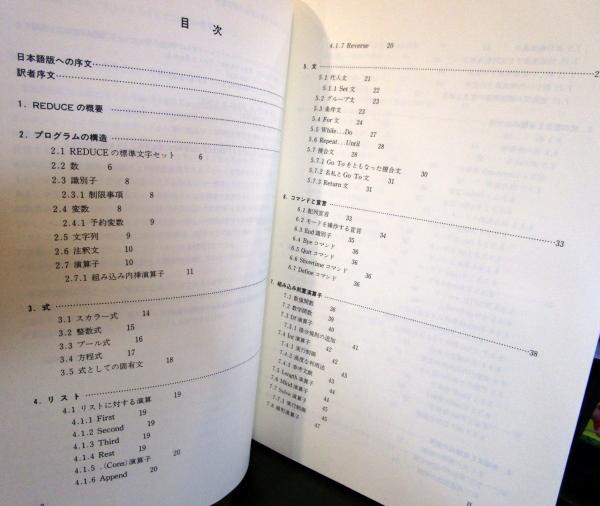 目 次
日本語版への序文
訳者序文
1. REDUCE の概要
2. プログラムの構造
2.1 REDUCE の標準文字セット 6
2.2 数 6
2.3 識別子 8
2.3.1 制限事項 8
2.4 変数 8
2.4.1 予約変数 9
2.5 文字列 9
2.6 注釈文 10
2.7 演算子 10
2.7.1 組み込み内挿演算子 11
3. 式
3.1 スカラー式 14
3.2 整数式 15
3.3 ブール式 16
3.4 方程式 17
3.5 式としての固有文 18
4. リスト
4.1 リストに対する演算 19
4.1.1 First 19
4.1.2 Second 19
4.1.3 Third 19
4.1.4 Rest 19
4.1.5 .(Cons)演算子 20
4.1.6 Append 20
4.1.7 Reverse 20
5. 文
5.1 代入文 21
5.1.1 Set 文 22
5.2 グループ文 23
5.3 条件文 23
5.4 For 文 24
5.5 While…Do 27
5.6 Repeat…Until 28
5.7 複合文 28
5.7.1 Go To をともなった複合文 30
5.7.2 名札と Go To 文 31
5.7.3 Return 文 31
6. コマンドと宣言 33
6.1 配列宣言 33
6.2 モードを操作する宣言 34
6.3 End 識別子 35
6.4 Bye コマンド 36
6.5 Quit コマンド 36
6.6 Showtime コマンド 36
6.7 Define コマンド 36
7. 組み込み前置演算子 38
7.1 数値関数 38
7.2 数学関数 39
7.3 Df 演算子 40
7.3.1 微分規則の追加 41
7.4 Int 演算子 42
7.4.1 実行制御 42
7.4.2 高度な利用法 43
7.4.3 参考文献 43
7.5 Length 演算子 44
7.6 Mkid 演算子 44
7.7 Solve 演算子 44
7.7.1 実行制御 45
7.8 線形演算子 47